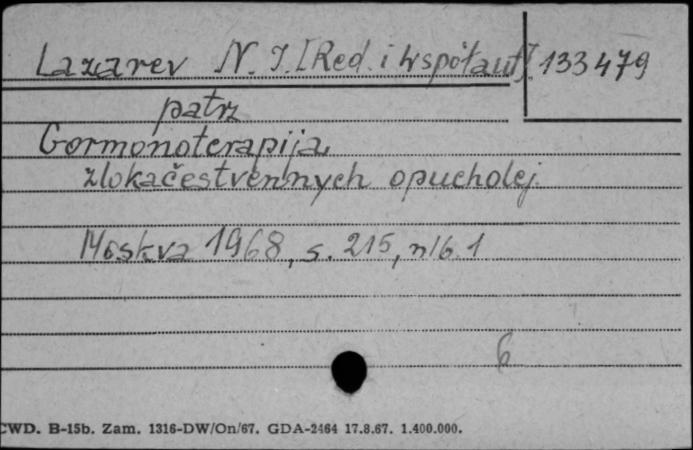 Lazarev N. I. [Red. i współaut]. 133479
patrz
Gormonoterapija
zlokačestvennych opucholej.
Moskva 1968, s. 215, nlb. 1
6
CWD. B-15b. Zam. 1316-DW/On/67. GDA-2464 17.8.67. 1.400.000.